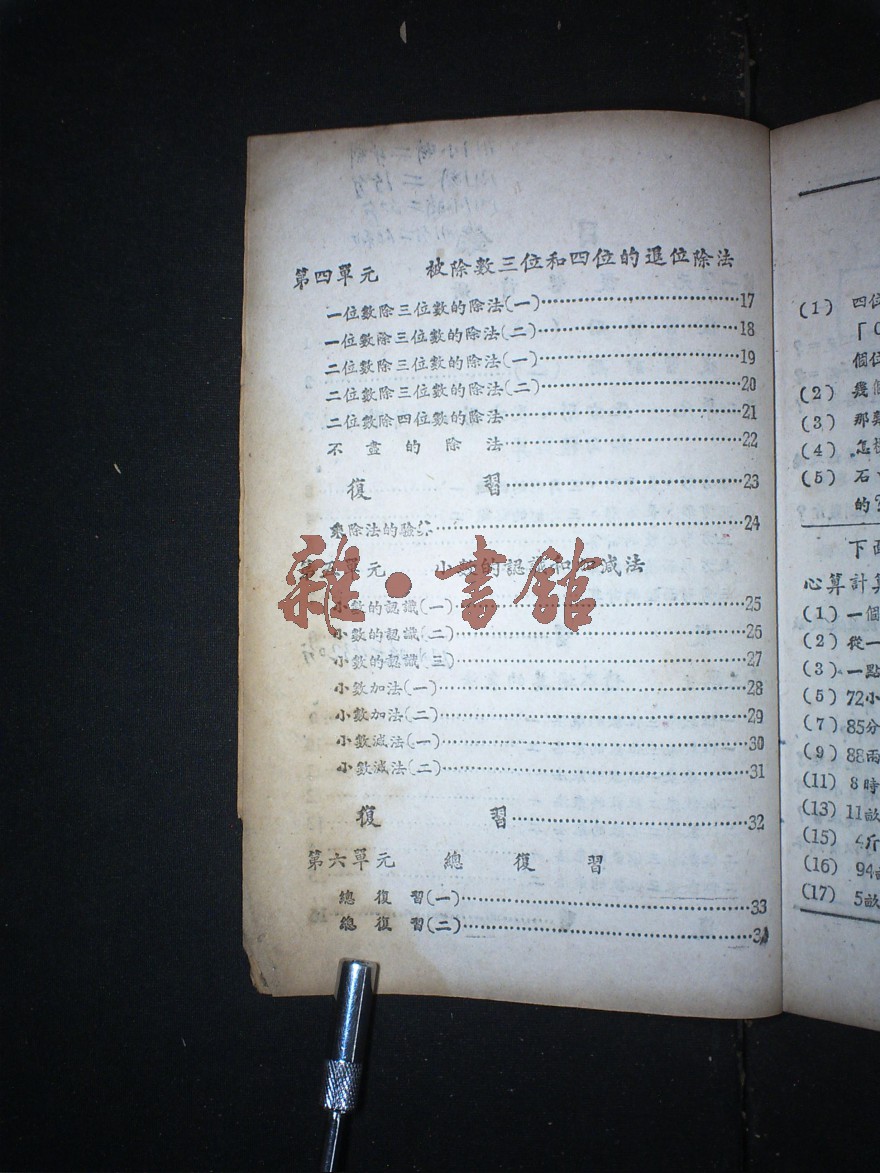 第四單元 被除數三位和四位的退位除法
一位數除三位數的除法(一)……17
一位數除三位數的除法(二)……18
二位數除三位數的除法(一)……19
二位數除三位數的除法(二)……20
二位數除四位數的除法……21
不盡的除法……22
復習……23
乘除法的驗算……24
第五單元 小數的認識和加減法
雜·書館
小數的認識(一)……25
小數的認識(二)……26
小數的認識(三)……27
小數加法(一)……28
小數加法(二)……29
小數減法(一)……30
小數減法(二)……31
復習……32
第六單元 總復習
總復習(一)……33
總復習(二)……34
(1) 四位
「0
個位
(2) 幾個
(3) 那
(4) 怎樣
(5) 石
的
下面
心算計算
(1) 一個
(2) 從一
(3) 一點
(5) 72小
(7) 85分
(9) 88兩
(11) 8時
(13) 11畝
(15) 4斤
(16) 94
(17) 5畝